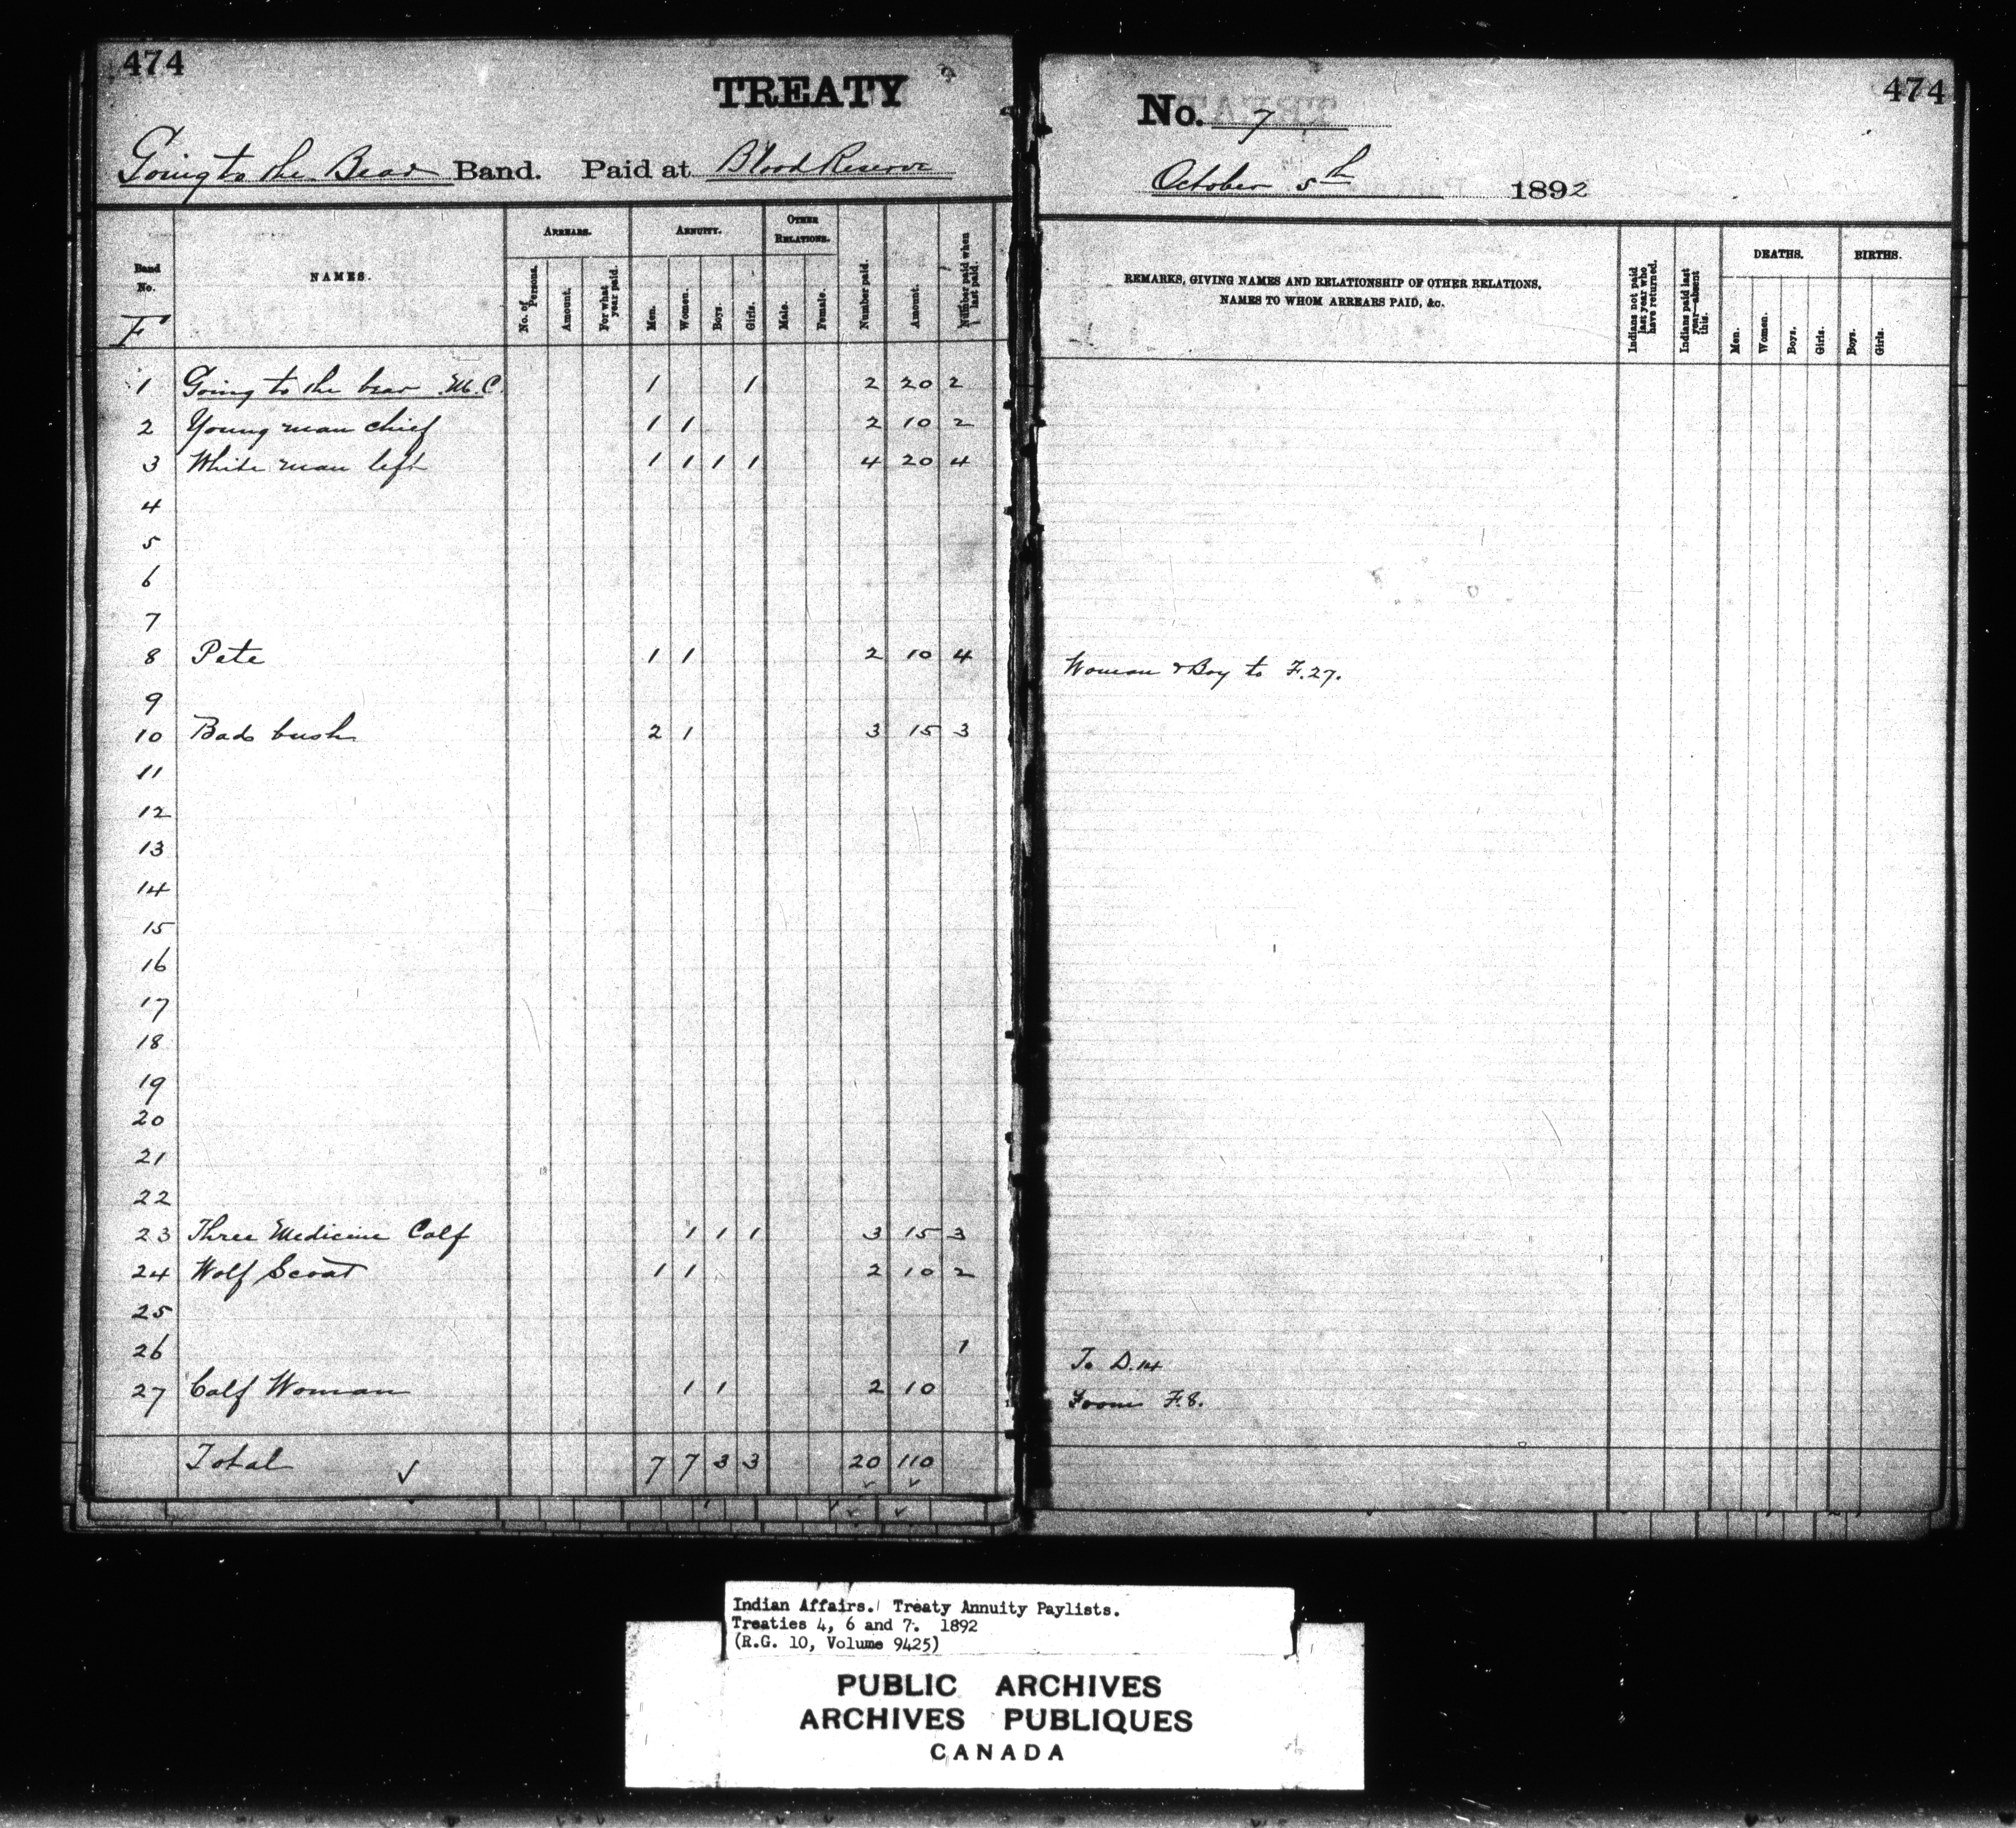 474
TREATY
Going to the Bear Band. Paid at Blood Reserve
Band No.
F
NAMES.
ARREARS.
No. of Persons.
Amount.
For what year paid.
ANNUITY.
Men.
Women.
Boys
Girls.
OTHER RELATIONS.
Male.
Female.
Number paid.
Amount.
Number paid when last paid.
1 Going to the bear M.C. 1 1 2 20 2
2 Young man chief 1 1 2 10 2
3 White man left 1 1 1 1 4 20 4
4
5
6
7
8 Pete 1 1 2 10 4
9
10 Bad bush 2 1 3 15 3
11
12
13
14
15
16
17
18
19
20
21
22
23 Three Medicine Calf 1 1 1 3 15 3
24 Wolf Scout 1 1 2 10 2
25
26 1
27 Calf Woman 1 1 2 10
Total 7 7 3 3 20 110
474
No. 7
October 5th 1892
REMARKS, GIVING NAMES AND RELATIONSHIP OF OTHER RELATIONS,
NAMES TO WHOM ARREARS PAID, &c.
Indians not paid last year who have returned.
Indians paid last year—absent this.
DEATHS.
Men.
Women.
Boys.
Girls.
BIRTHS.
Boys.
Girls.
Woman & Boy to F.27.
To D.14
From F.8.
Indian Affairs. Treaty Annuity Paylists.
Treaties 4, 6 and 7. 1892
(R.G. 10, Volume 9425)
PUBLIC ARCHIVES
ARCHIVES PUBLIQUES
CANADA